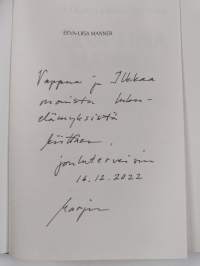 EEVA-LIISA MANNER
Vappua ja Ilkkaa
monista luku-
elämyksistä
kiittäen,
jouluterveisin
16.12.2022
Marjin